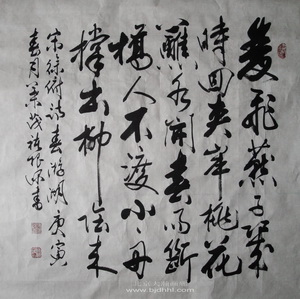 雙飛燕子幾
時回夾岸桃花
蘸水開春雨斷
橋人不渡小舟
撑出柳陰来
宋徐俯詩春游湖庚寅
春月